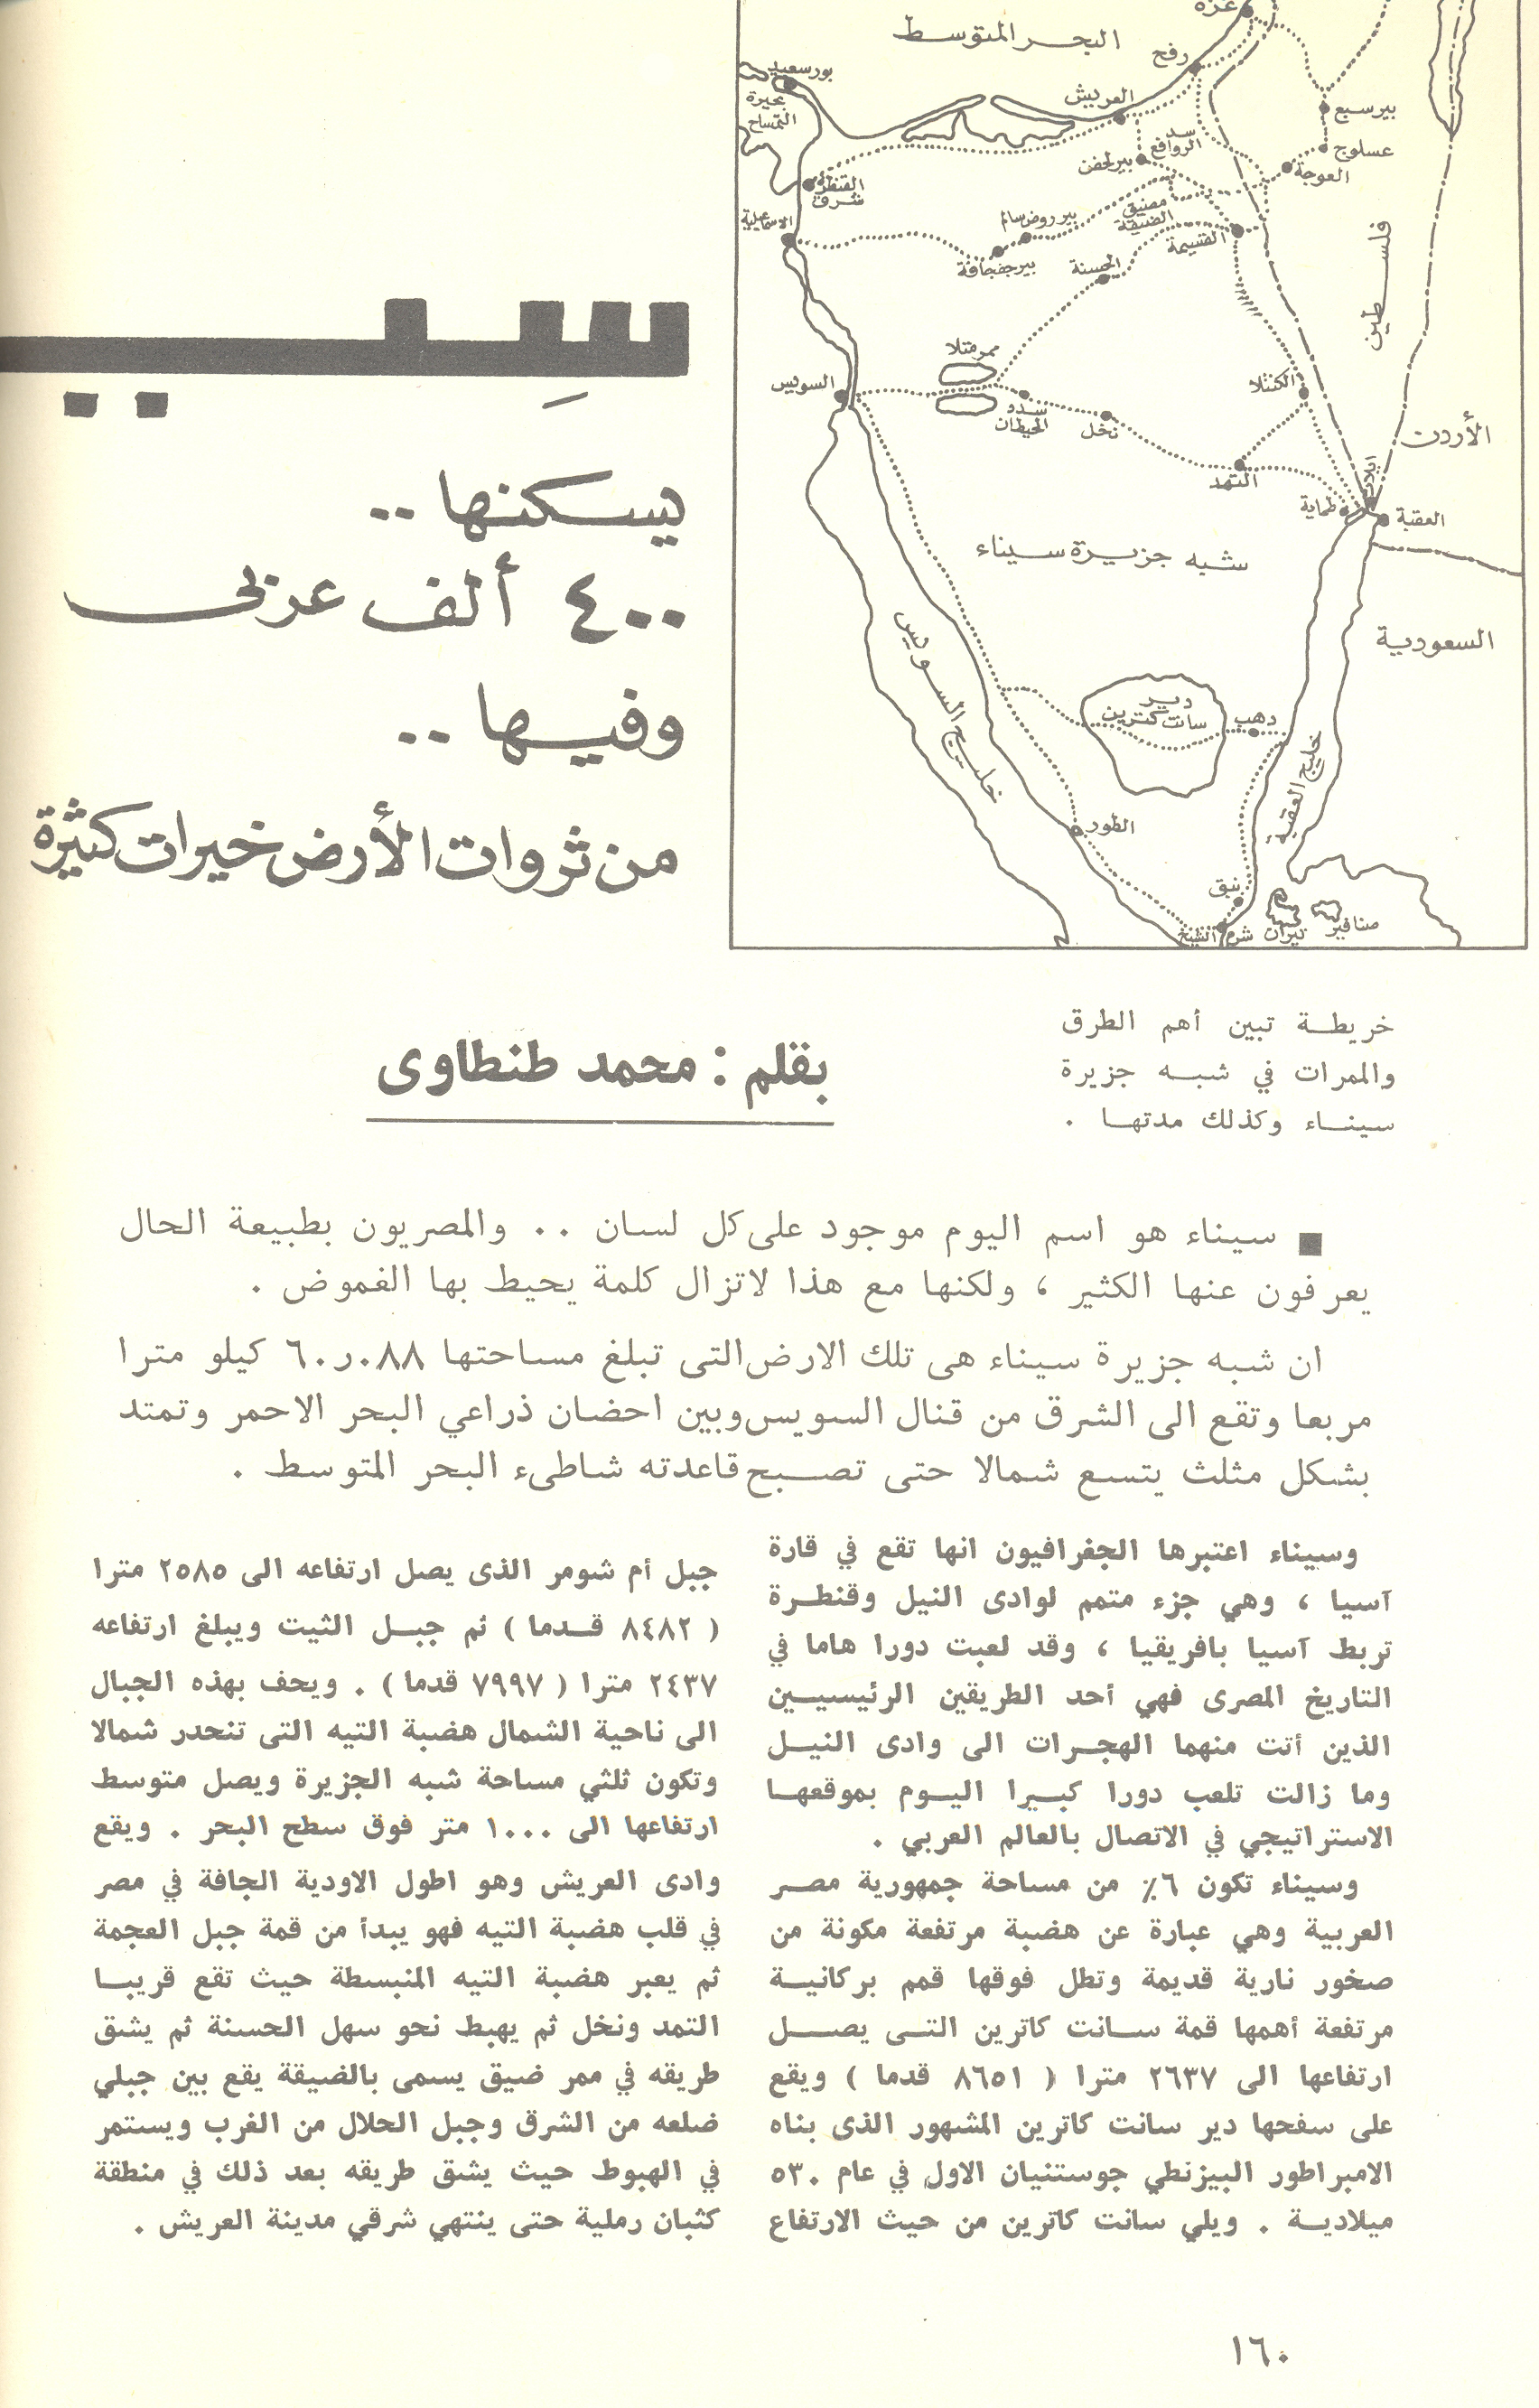 غزة
البحر المتوسط
رفح
بورسعيد
العريش
بحيرة
التمساح
بير سبع
سد
الروافع
عسلوج
بير لحفن
العوجة
القنطرة
شرق
الاسماعيلية
مضيق
الضيقة
بير روض سالم
القسيمة
بير جفجافة
الحسنة
فلسطين
ممر متلا
السويس
الكنتلا
سدر
الحيطان
نخل
الأردن
ايلات
التمد
طماية
العقبة
شبه جزيرة سيناء
السعودية
خليج السويس
دير
سانت كترين
دهب
خليج العقبة
الطور
نبق
شرم الشيخ
تيران
صنافير
يسكنها ..
٤٠٠ ألف عربى
وفيها ..
من ثروات الأرض خيرات كثيرة
خريطة تبين أهم الطرق
والممرات في شبه جزيرة
سيناء وكذلك مدتها .
بقلم : محمد طنطاوى
■ سيناء هو اسم اليوم موجود على كل لسان .. والمصريون بطبيعة الحال
يعرفون عنها الكثير ، ولكنها مع هذا لاتزال كلمة يحيط بها الغموض .
ان شبه جزيرة سيناء هى تلك الارض التى تبلغ مساحتها ٦٠ر٠٨٨ كيلو مترا
مربعا وتقع الى الشرق من قنال السويس وبين احضان ذراعي البحر الاحمر وتمتد
بشكل مثلث يتسع شمالا حتى تصبح قاعدته شاطىء البحر المتوسط .
وسيناء اعتبرها الجغرافيون انها تقع في قارة
آسيا ، وهي جزء متمم لوادى النيل وقنطرة
تربط آسيا بافريقيا ، وقد لعبت دورا هاما في
التاريخ المصرى فهي أحد الطريقين الرئيسيين
الذين أتت منهما الهجرات الى وادى النيل
وما زالت تلعب دورا كبيرا اليوم بموقعها
الاستراتيجي في الاتصال بالعالم العربي .
وسيناء تكون ٦٪ من مساحة جمهورية مصر
العربية وهي عبارة عن هضبة مرتفعة مكونة من
صخور نارية قديمة وتطل فوقها قمم بركانية
مرتفعة أهمها قمة سانت كاترين التى يصل
ارتفاعها الى ٢٦٣٧ مترا ( ٨٦٥١ قدما ) ويقع
على سفحها دير سانت كاترين المشهور الذى بناه
الامبراطور البيزنطي جوستنيان الاول في عام ٥٣٠
ميلادية . ويلي سانت كاترين من حيث الارتفاع
جبل أم شومر الذى يصل ارتفاعه الى ٢٥٨٥ مترا
( ٨٤٨٢ قدما ) ثم جبل الثيت ويبلغ ارتفاعه
٢٤٣٧ مترا ( ٧٩٩٧ قدما ) . ويحف بهذه الجبال
الى ناحية الشمال هضبة التيه التى تنحدر شمالا
وتكون ثلثي مساحة شبه الجزيرة ويصل متوسط
ارتفاعها الى ١٠٠٠ متر فوق سطح البحر . ويقع
وادى العريش وهو اطول الاودية الجافة في مصر
في قلب هضبة التيه فهو يبدأ من قمة جبل العجمة
ثم يعبر هضبة التيه المنبسطة حيث تقع قريبا
التمد ونخل ثم يهبط نحو سهل الحسنة ثم يشق
طريقه في ممر ضيق يسمى بالضيقة يقع بين جبلي
ضلعه من الشرق وجبل الحلال من الغرب ويستمر
في الهبوط حيث يشق طريقه بعد ذلك في منطقة
كثبان رملية حتى ينتهي شرقي مدينة العريش .
١٦٠